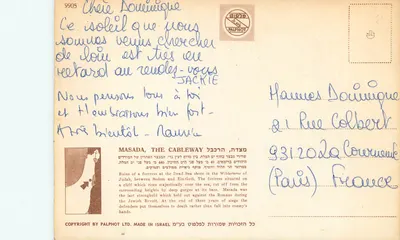 9905
Chère Dominique
Ce soleil que nous
sommes venus chercher
de loin est très en
retard au rendez-vous
JACKIE
Nous pensons tous à toi
et t'embrassons bien fort -
A très bientôt - Maurice
Hannos Dominique
21 Rue Colbert
93120 La Courneuve
(Paris) France
PALPHOT
מצדה, הרכבל MASADA, THE CABLEWAY
Ruins of a fortress on the Dead Sea shore in the Wilderness of
Judah, between Sodom and Ein-Gedi. The fortress situated on
a cliff which rises majestically over the sea, cut off from the
surrounding heights by deep gorges on all sides. Masada was
the last stronghold which held out against the Romans during
the Jewish Revolt. At the end of three years of siege the
defenders put themselves to death rather than fall into enemy's
hands.
COPYRIGHT BY PALPHOT LTD. MADE IN ISRAEL כל הזכויות שמורות לפלפוט בע"מ